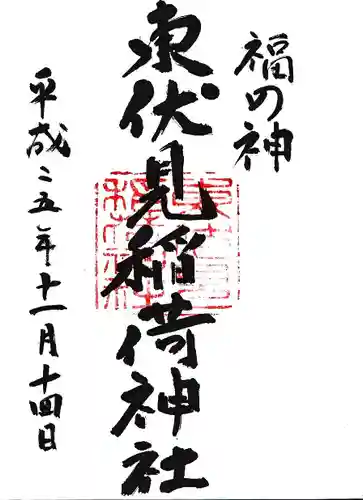 福の神
東伏見稲荷神社
平成二五年十一月十四日